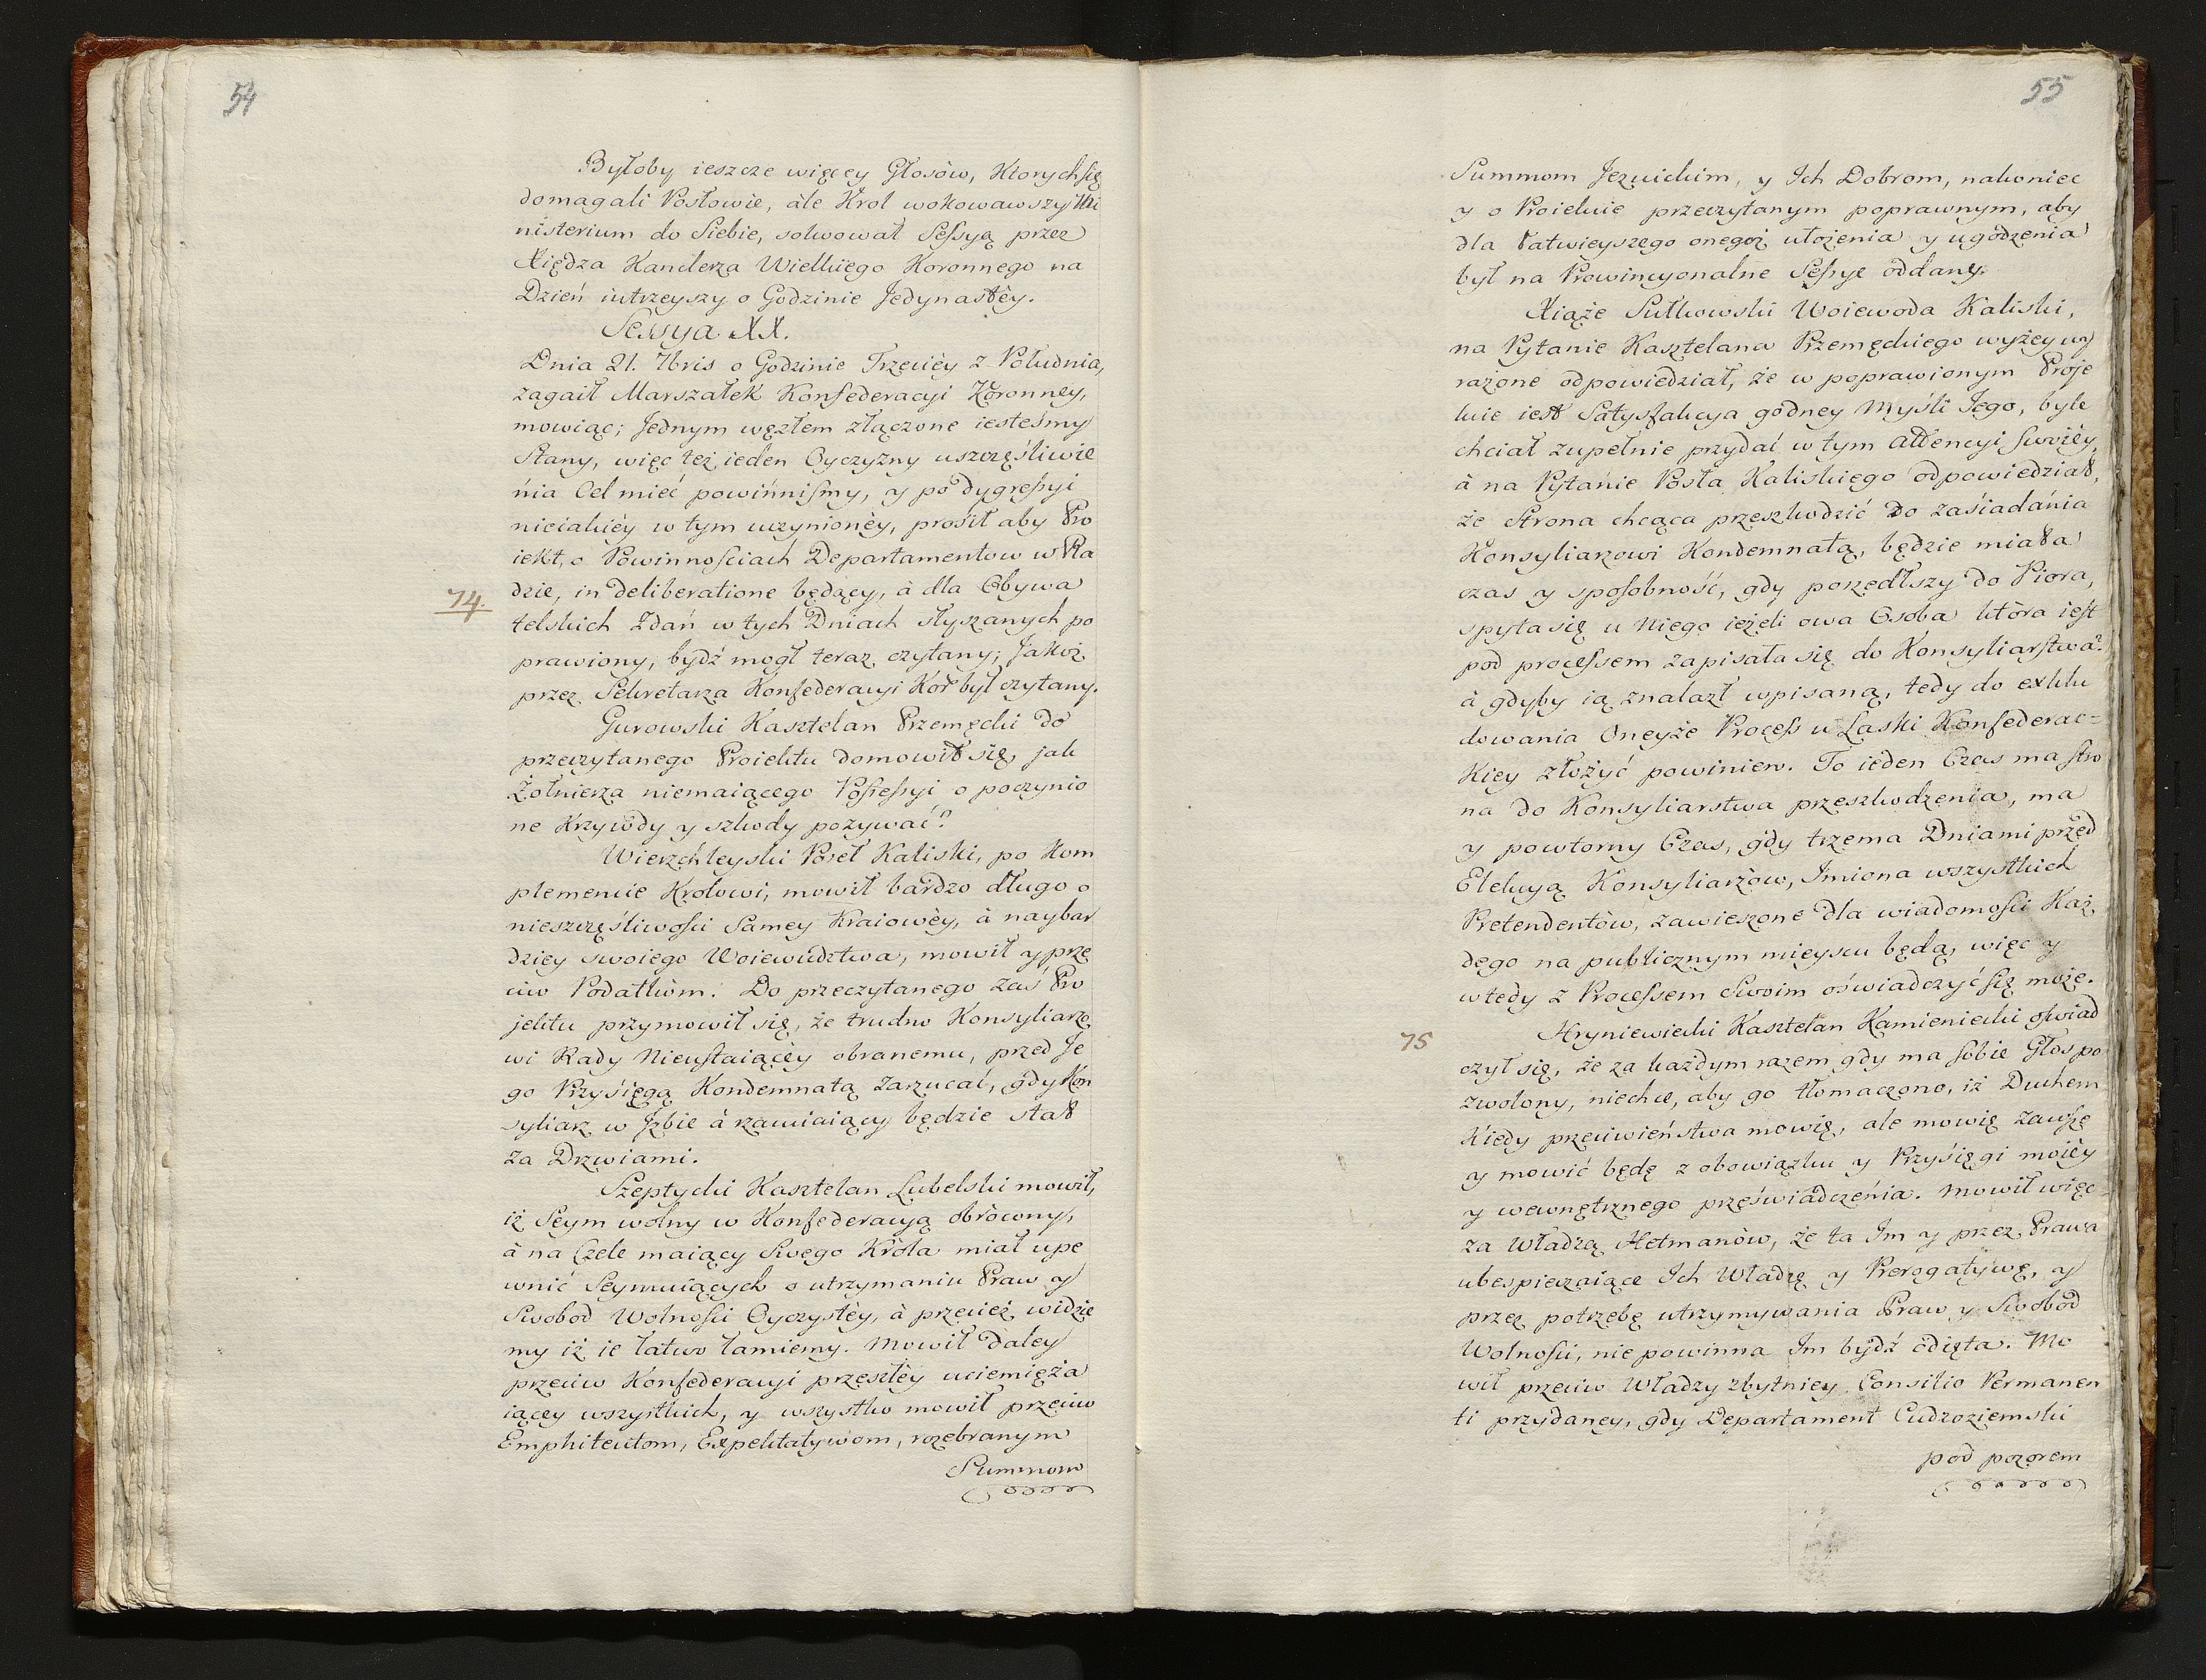 54
Byłoby ieszcze więcey Głosòw, Ktorych się
domagali Posłowie, àle Krol wokowawszy Mi
nisterium do Siebie, solwował Sessyą przez
Xiędza Kanclerza Wielkiego Koronnego na
Dzień iutrzeyszy o Godzinie Jedynastèy.
Sessya XX.
Dnia 21. 7bris o Godzinie Trzeciéy z Południa,
zagaił Marszałek Konfederacyi Koronney,
mowiąc; Jednym węzłem złączone iesteśmy
Stany, więc też ieden Oyczyzny uszczęśliwie
nia Cel mieć powinniśmy, y po dygressyi
nieiakiéy w tym uczynionéy, prosił aby Pro
iekt, o Powinnościach Departamentow w Ra
74.
dzie, in deliberatione będący, à dla Obywa
telskich Zdań w tych Dniach słyszanych po
prawiony, bydź mogł teraz czytany; Jakoż
przez Sekretarza Konfederacyi Kor był czytany.
Gurowski Kasztelan Przemęcki do
przeczytanego Proiektu domowił się, jak
Żołnierza niemaiącego Possessyi o poczynio
ne Krzywdy y szkody pozywać?
Wierzchleyski Poseł Kaliski, po Kom
plemencie Krolowi, mowił bardzo długo o
nieszczęśliwości Samey Kraiowèy, à naybar
dziey swoiego Woiewudztwa, mowił y prze
ciw Podatkom. Do przeczytanego zaś Pro
jektu przymowił się, że trudno Konsyliarzo
wi Rady Nieustaiącéy obranemu, przed Je
go Przysięgą Kondemnatą zarzucać, gdy Kon
syliarz w Jzbie à rzauiaiący będzie stał
za Drzwiami.
Szeptycki Kasztelan Lubelski mowił,
iż Seym wolny w Konfederacyą obròcony,
à na Czele maiący Swego Króla miał upe
wnić Seymuiących o utrzymaniu Praw y
Swobod Wolności Oyczystéy, à przecież widzie
my iż ie łatwo łamiemy. Mowił daley
przeciw Konfederacyi przeszłéy uciemięża
iącéy wszystkich, y wszystko mowił przeciw
Emphiteutom, Expektatywom, rozebranym
Summom

55
Summom Jezuickim, y Jch Dobrom, nakoniec
y o Proiekcie przeczytanym poprawnym, aby
dla łatwieyszego onegoż ułożenia y ugodzenia
był na Prowincyonalne Sessye oddany.
Xiąże Sułkowski Woiewoda Kaliski,
na Pytanie Kasztelana Przemęckiego wyżey wy
rażone odpowiedział, że w poprawionym Proje
kcie iest Satysfakcya godney Myśli Jego, byle
chciał zupełnie przydać w tym attencyi swoiéy,
à na Pytanie Posła Kaliskiego odpowiedział,
że Strona chcąca przeszkodzić do zasiadánia
Konsyliarzowi Kondemnatą, będzie miała
czas y sposobność, gdy poszedłszy do Piora,
spyta się u Niego ieżeli owa Osoba ktòra iest
pod processem zapisała się do Konsyliarstwa?
à gdyby ią znalazł wpisaną, tedy do exklu
dowania Oneyże Process u Laski Konfederac=
kiey złożyć powinien. To ieden Czas ma stro
na do Konsyliarstwa przeszkodzenia, ma
y powtorny Czas, gdy trzema Dniami przed
Elekcyą Konsyliarzòw, Jmiona wszystkich
Pretendentòw, zawieszone dla wiadomości Każ
dego na publicznym mieyscu będą, więc y
wtedy z Processem Swoim oświadczyć się może.
75
Hryniewiecki Kasztelan Kamieniecki oświad
czył się, że za każdym razem gdy ma sobie Głos po
zwolony, niechce, aby go tłomaczono, iż Duchem
Kiedy przeciwieństwa mowię, ale mowię zawsze
y mowić będę z obowiązku y Przysięgi moiéy
y wewnętrznego przeświadczenia. Mowił więc
za Władzą Hetmanòw, że ta Jm y przez Prawa
ubespieczaiące Jch Władzę y Prerogatywę, y
przez potrzebę utrzymywania Praw y Swobod
Wolności, nie powinna Jm bydź odięta. Mo
wił przeciw Władzy zbytniey Consilio Permanen
ti przydaney, gdy Departament Cudzoziemski
pod pozorem